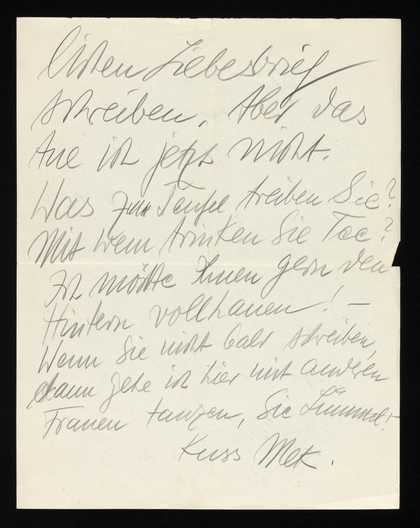 einen Liebesbrief
schreiben, Aber das
tue ich jetzt nicht.
Was zum Teufel treiben Sie?
Mit wem trinken Sie Tee?
Ich möchte Ihnen gern den
Hintern vollhauen! —
Wenn Sie nicht bald schreiben,
dann gehe ich hier mit anderen
Frauen tanzen, Sie Lümmel.
Kuss Mek.